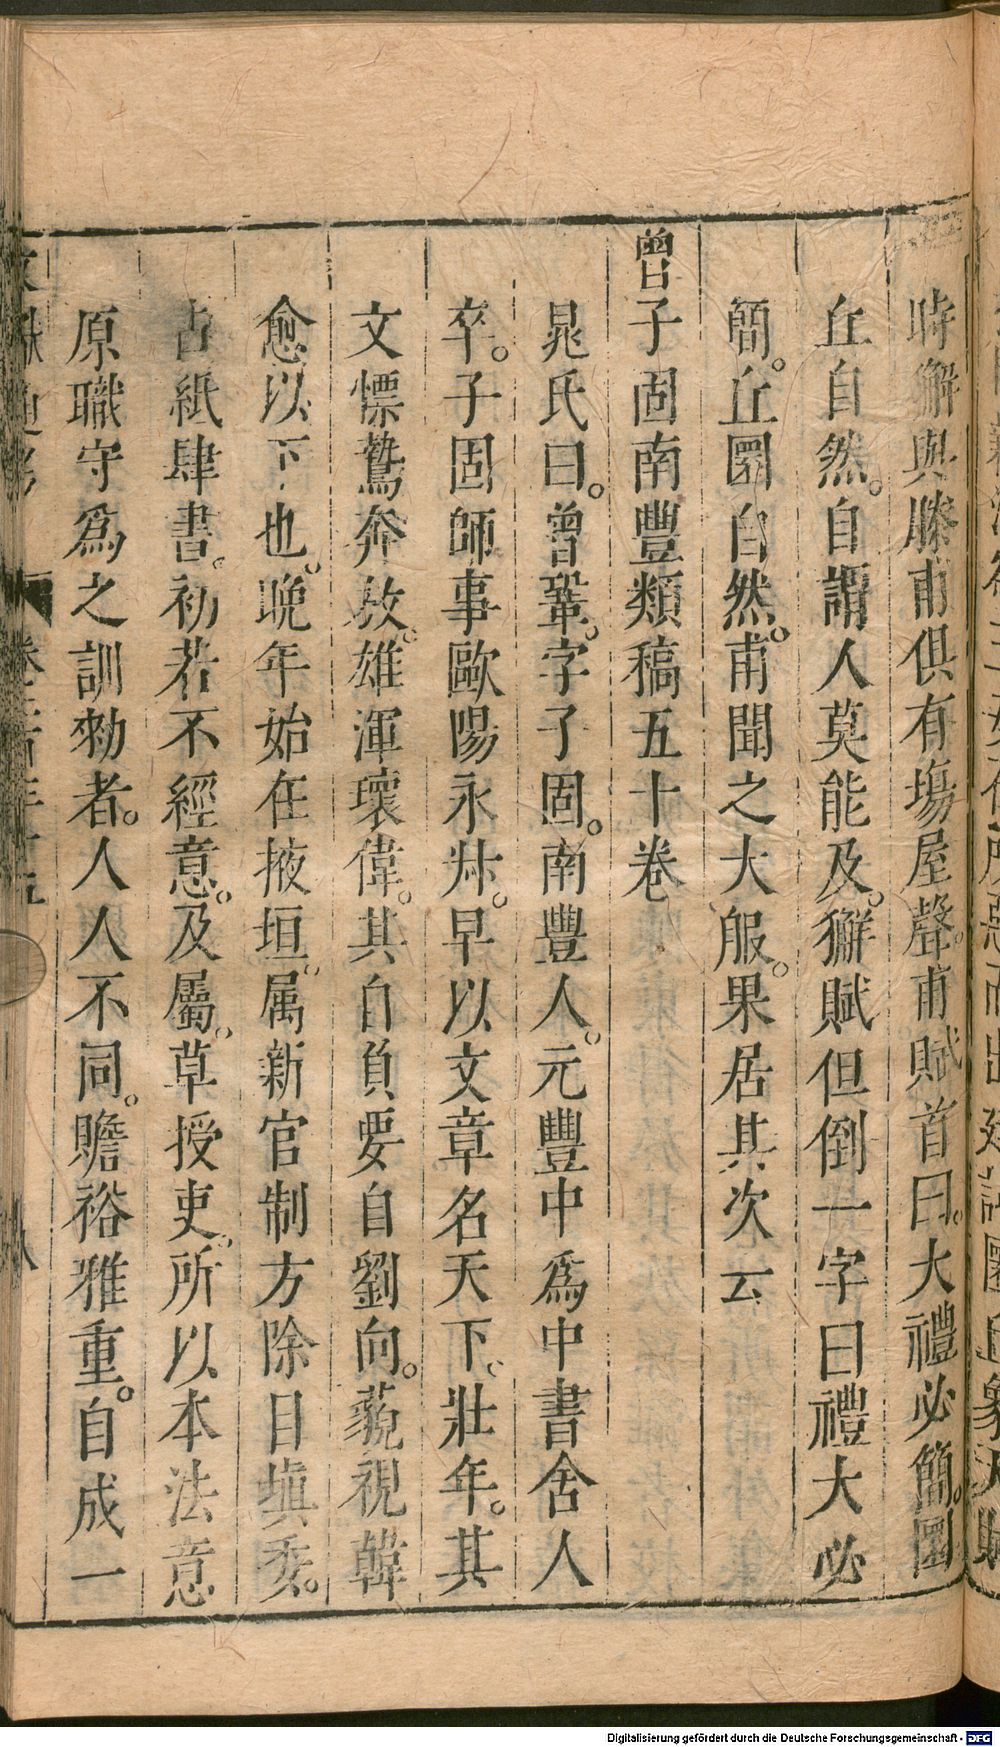 時獬與滕甫俱有場屋聲。甫賦首曰。大禮必簡。圜
丘自然。自謂人莫能及。獬賦但倒一字曰禮大必
簡。丘圜自然。甫聞之大服。果居其次云
曾子固南豐類稿五十卷
晁氏曰。曾鞏。字子固。南豐人。元豐中為中書舍人
卒。子固師事歐陽永叔。早以文章名天下。壯年。其
文慓鷙奔放。雄渾瓌偉。其自負要自劉向。藐視韓
愈以下也。晚年始在掖垣。属新官制方除目填委。
占紙肆書。初若不經意。及屬。草授吏。所以本法意
原職守為之訓勑者。人人不同。贍裕雅重。自成一
文獻通考 卷二百三十五 八
Digitalisierung gefördert durch die Deutsche Forschungsgemeinschaft - DFG